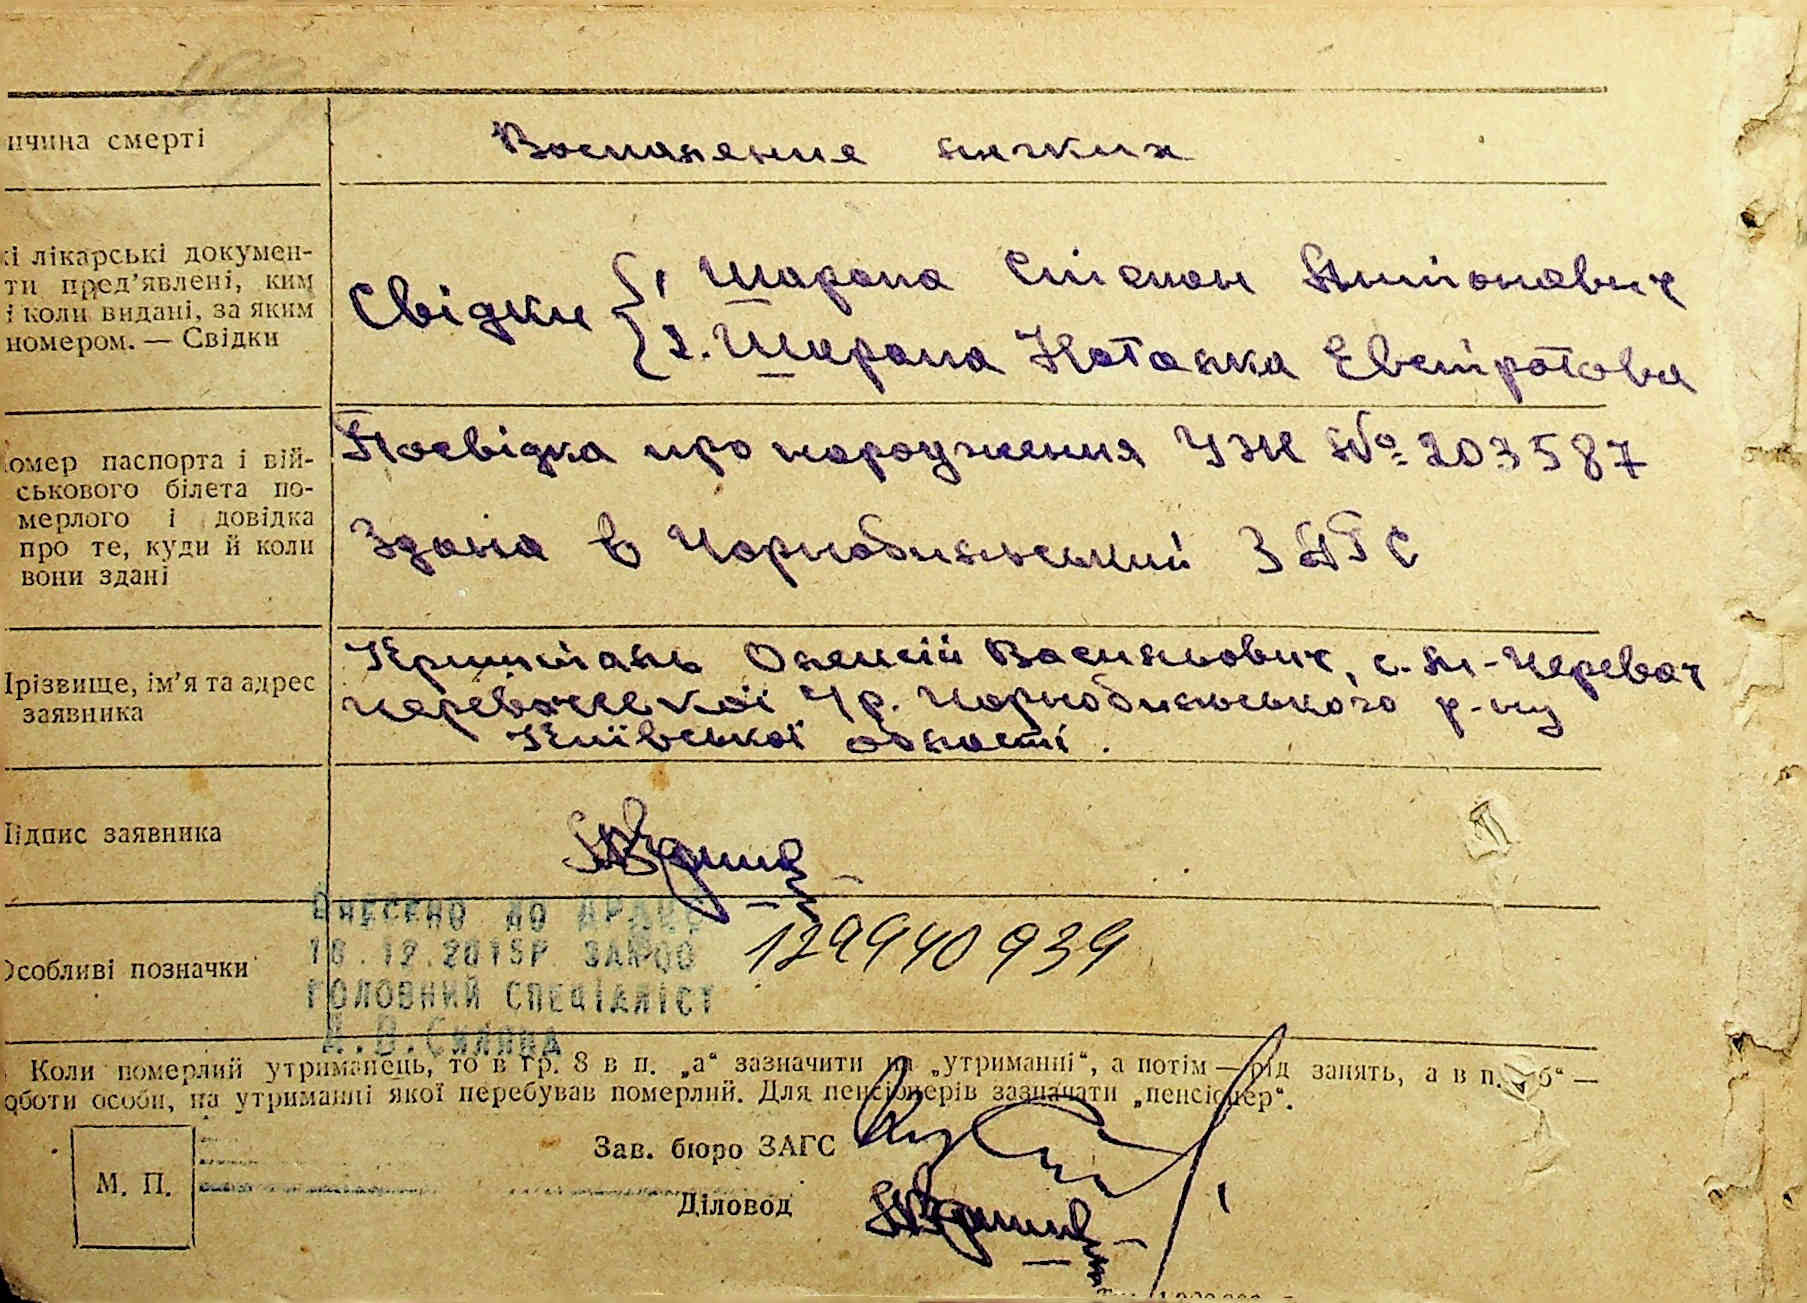 ичина смерті
Воспаление лигких
кі лікарські докумен-
ти пред’явлені, ким
і коли видані, за яким
номером. — Свідки
Свідки { 1 Шарапа Степан Антонович
2. Шарапа Наталка Евстратова
омер паспорта і вій-
ськового білета по-
мерлого і довідка
про те, куди й коли
вони здані
Посвідка про народження УЖ № 203587
Здана в Чорнобильський ЗАГС
Прізвище, ім’я та адрес
заявника
Криштань Олексій Васильович, с. -Черевач
Черевачської с/р. Чорнобильського р-ну
Київської області.
Підпис заявника
Особливі позначки
ВНЕСЕНО ДО
18.12.2015Р.
ГОЛОВНИЙ СПЕЦІАЛІСТ
129940939
Коли померлий утриманець, то в гр. 8 в п. „а“ зазначити на „утриманні“, а потім — рід занять, а в п. „б“ —
оботи особи, на утриманні якої перебував померлий. Для пенсіонерів зазначати „пенсіонер“.
М. П.
Зав. бюро ЗАГС
Діловод